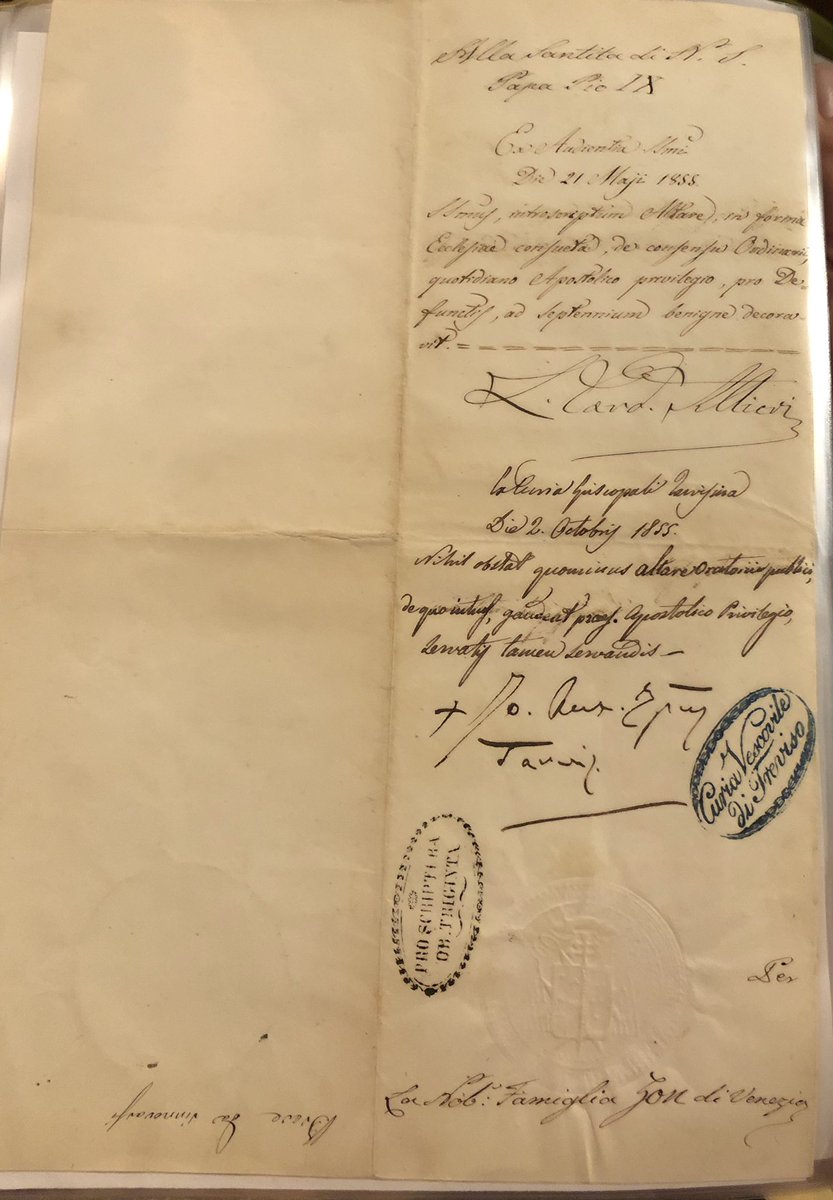 Alla Santita di N. S.
Papa Pio IX
Ex Audientia SSmi
Die 21 Maji 1855.
SSmus, introscriptum Altare, in forma
Ecclesiae consueta, de consensu Ordinarii,
quotidiano Apostolico privilegio, pro De-
functis, ad septennium benigne decora-
vit. =
L. Card. Altieri
Ex Curia Episcopali Tarvisina
Die 2. Octobris 1855.
Nihil obstat quominus altare Oratorii publici,
de quo intus, gaudeat praes. Apostolico Privilegio,
servatis tamen servandis —
+ Jo. Ant. Epus
Tarvis.
Curia Vescovile
di Treviso
PRO SCRIPTURA
OB. TRIGINTA
Per
La Nob: Famiglia Zon di Venezia
Breve da rinnovarsi